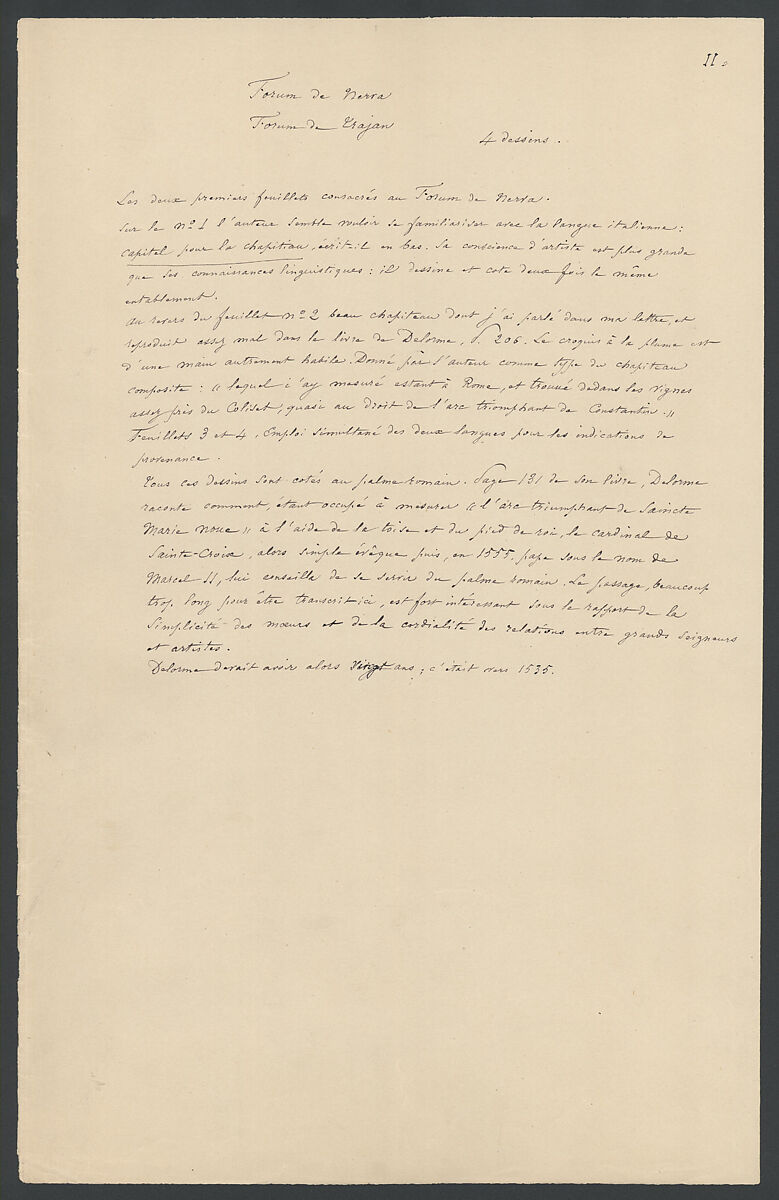 II.
Forum de Nerva
Forum de Trajan
4 dessins.
Les deux premiers feuillets consacrés au Forum de Nerva.
Sur le nº 1 l'auteur semble vouloir se familiariser avec la langue italienne :
capitel pour la chapiteau, écrit-il en bas. Sa conscience d'artiste est plus grande
que ses connaissances linguistiques : il dessine et cote deux fois le même
entablement.
Au revers du feuillet nº 2 beau chapiteau dont j'ai parlé dans ma lettre, et
reproduit assez mal dans le livre de Delorme, p. 206. Le croquis à la plume est
d'une main autrement habile. Donné par l'auteur comme type du chapiteau
composite : « lequel i'ay mesuré estant à Rome, et trouué dedans les vignes
assez près du Coliset, quasi au droit de l'arc triomphant de Constantin. »
Feuillets 3 et 4, emploi simultané des deux langues pour les indications de
provenance.
Tous ces dessins sont cotés au palme romain. Page 131 de son livre, Delorme
raconte comment, étant occupé à mesurer « l'arc triumphant de Saincte
Marie noue » à l'aide de la toise et du pied de roi, le cardinal de
Sainte-Croix, alors simple évêque puis, en 1555, pape sous le nom de
Marcel II, lui conseilla de se servir du palme romain. Le passage, beaucoup
trop long pour être transcrit ici, est fort intéressant sous le rapport de la
simplicité des mœurs et de la cordialité des relations entre grands seigneurs
et artistes.
Delorme devait avoir alors vingt ans ; c'était vers 1535.